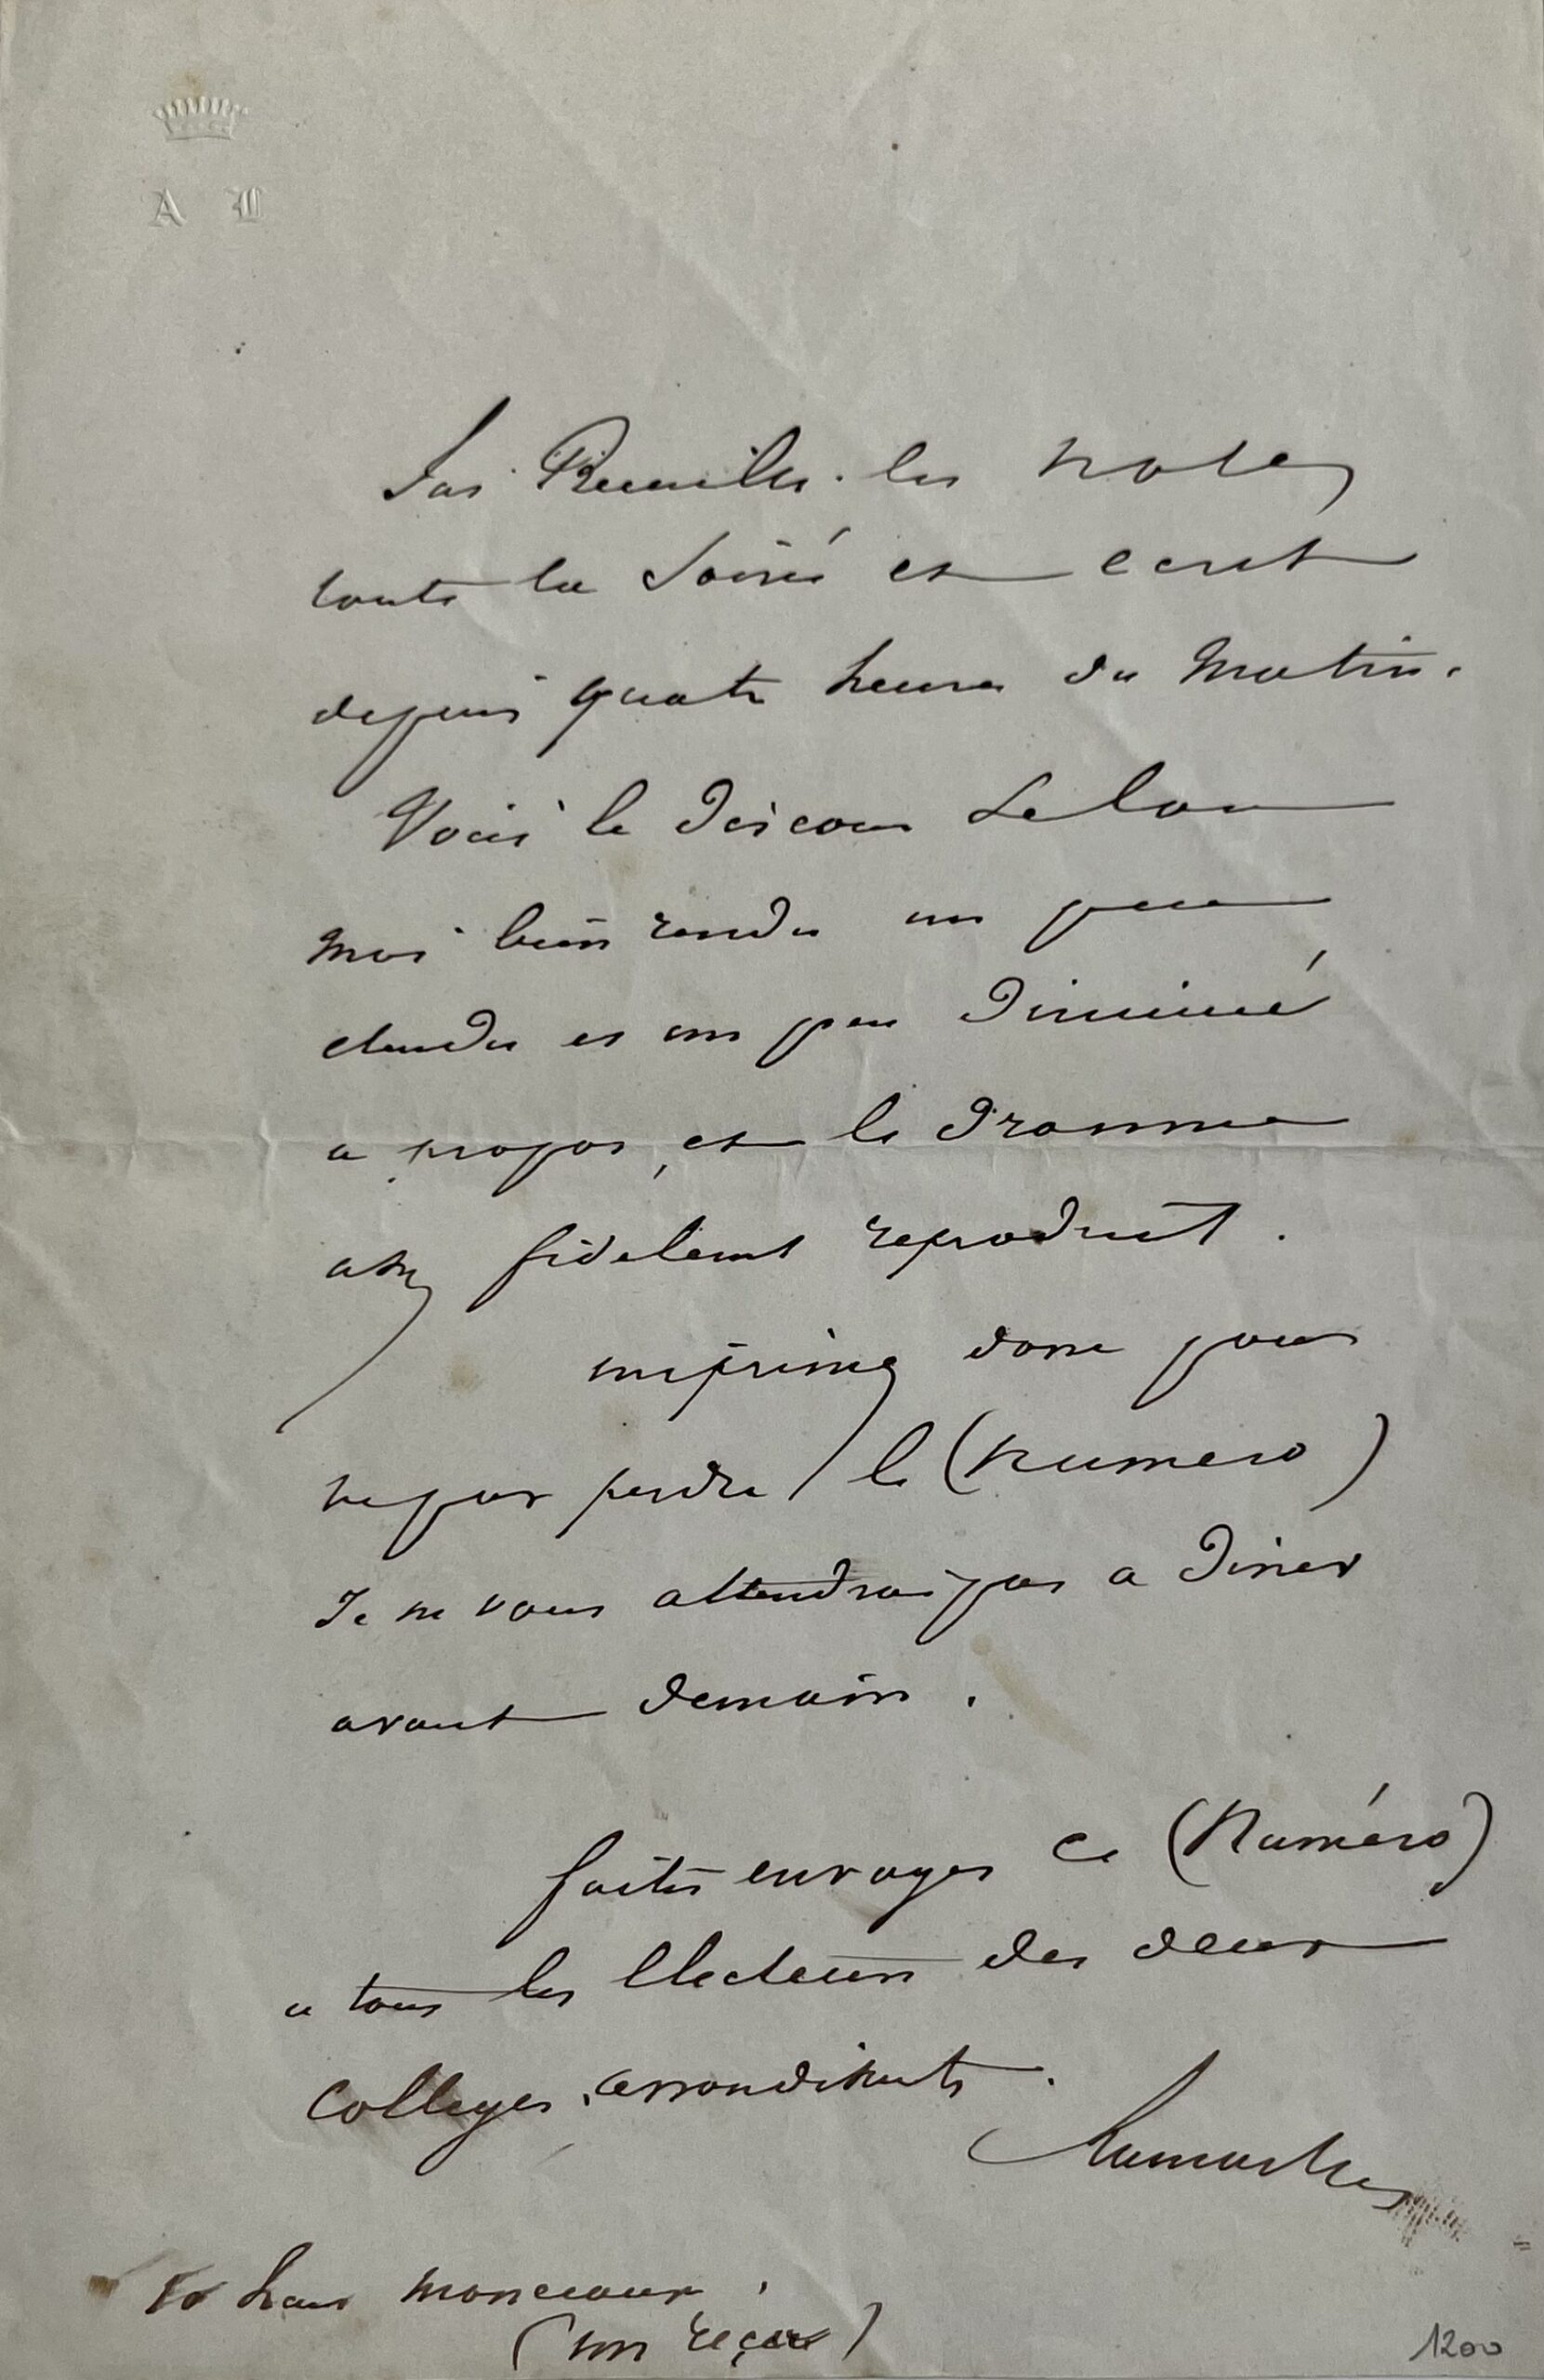 A L
J'ai Recueilli les notes
toute la Soirée et ecrit
depuis quatre heures du Matin.
Voici le Discours Selon
moi bien rendu un peu
etendu et un peu Diminué
a propos, et le Dramme
assez fidelemt reproduit.
imprimez donc pour
ne pas perdre le (Numero)
Je ne vous attendrai pas a Diner
avant demain.
faites envoyer ce (Numéro)
a tous les Electeurs des deux
Colleges, arrondissents.
Lamartine
Monceaux
(un reçu)
1200